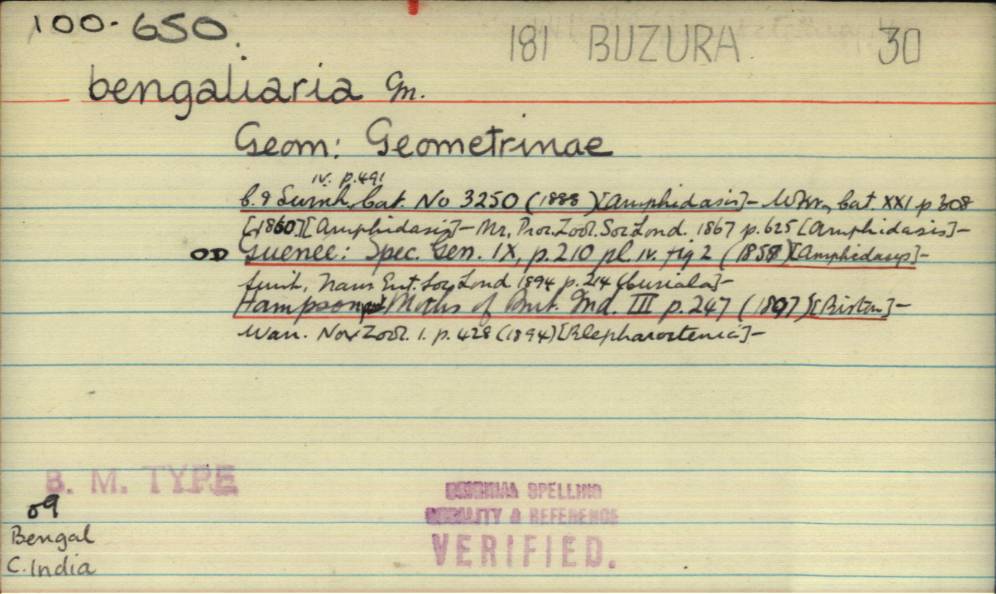 100-650.
181 BUZURA 30
bengaliaria Gn.
Geom: Geometrinae
iv. p.491
C. & Swinh. Cat. No 3250 (1888)[Amphidasis]- Wkr., Cat. XXI p 308
[1860][Amphidasis]- Mr, Proc. Zool. Soc. Lond. 1867 p.625 [Amphidasis]-
OD Guenee: Spec. Gen. IX, p.210 pl. iv. fig 2 (1858)[Amphidasys]-
Swinh, Trans Ent. Soc Lond 1894 p.214 (
Hampson Moths of Brit. Ind. III p.247 (1897)[Biston]-
Warr. Nov Zool. 1. p. 428 (1894)[Blepharoctenia]-
B. M. TYPE
Bengal
C. India
ORIGINAL SPELLING
LOCALITY & REFERENCE
VERIFIED.